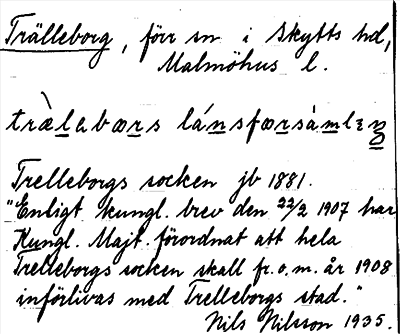 Trälleborg, förr sn i Skytts hd,
Malmöhus l.
træ̀labærs lánsfærsàmlıŋ
Trelleborgs socken jb 1881.
"Enligt kungl. brev den 22/2 1907 har
Kungl. Majt. förordnat att hela
Trelleborgs socken skall fr.o.m. år 1908
införlivas med Trelleborgs stad."
Nils Nilsson 1935.